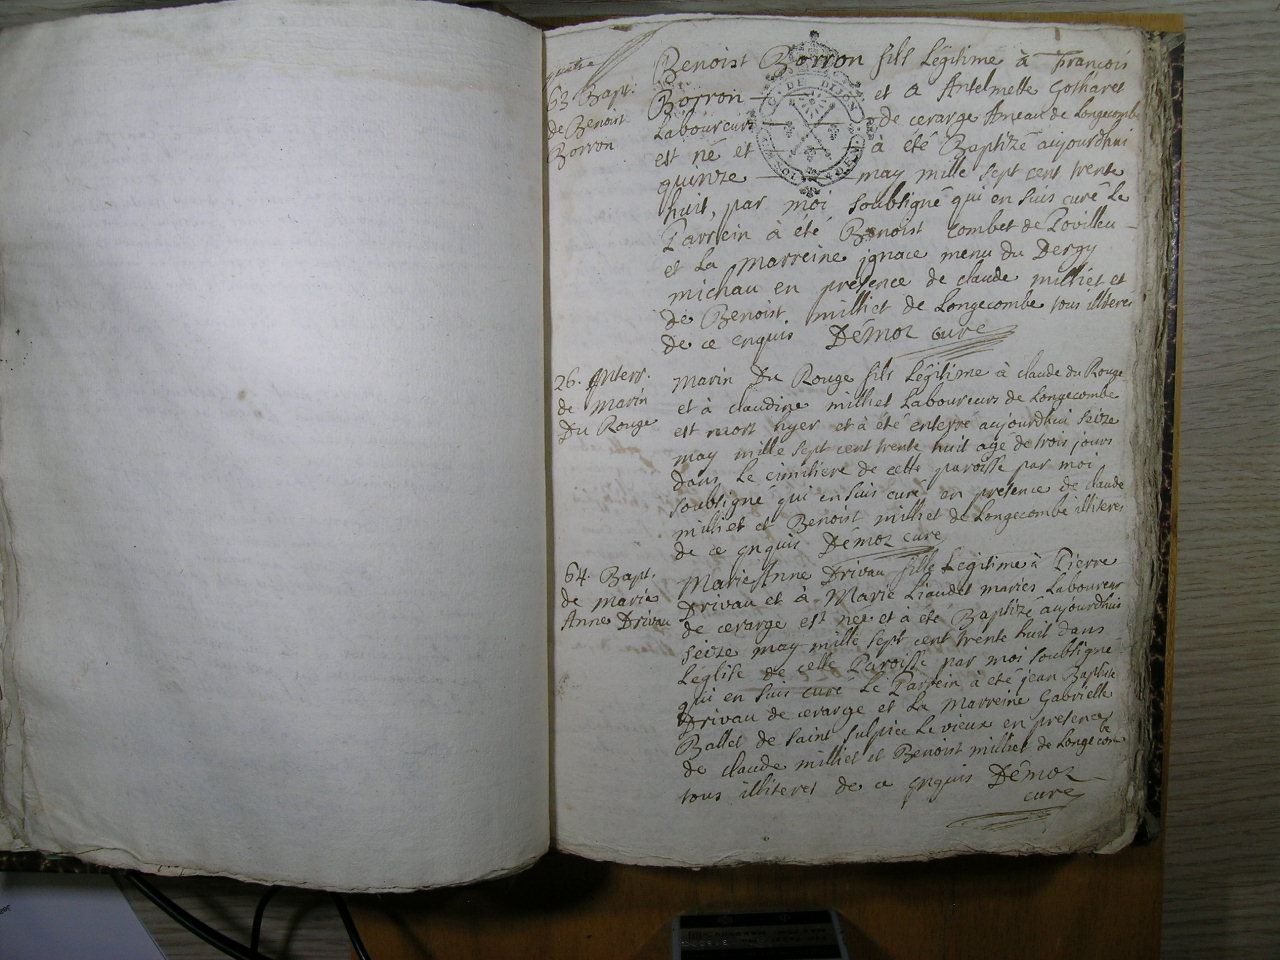 quatre
63. Bapt.
de Benoist
Borron
Benoist Borron fils Légitime à François
Borron et a Antelmette Gotharet
Laboureurs de cerarge Aneau de Longecombe
est né et à été Baptizé aujourdhui
quinze may mille sept cent trente
huit, par moi soubsigné qui en suis curé Le
Parrein à été Benoist Combet de
et La marreine ignace menu du Dergy
michau en présence de claude milliet et
de Benoist milliet de Longecombe tous illiteres
de ce enquis Démoz curé
26. Enterr.
de Marin
Du Rouge
Marin Du Rouge fils Légitime à claude du Rouge
et à claudine milliet Laboureurs de Longecombe
est mort hyer et à été enterré aujourdhui seize
may mille sept cent trente huit agé de trois jours
dans Le cimitiere de cette paroisse par moi
soubsigné qui en suis curé en présence de claude
milliet et Benoist milliet de Longecombe illiteres
de ce enquis Démoz curé
64. Bapt.
de Marie
Anne Drivau
Marie Anne Drivau fille Legitime à Pierre
Drivau et à Marie Liaudet mariés Laboureur
de cerarge est née et à été Baptizé aujourdhui
seize may mille sept cent trente huit dans
Léglise de cette Paroisse par moi soubsigné
qui en suis curé Le Parrein à été jean Baptiste
Drivau de cerarge et La Marreine Gabrielle
Ballet de saint sulpice Le vieux en présence
de claude milliet et Benoist milliet de Longecombe
tous illiteres de ce enquis Démoz
curé